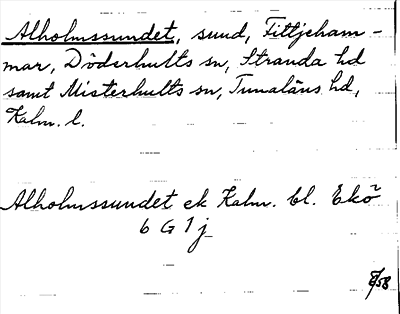 Alholmssundet, sund, Fittjeham-
mar, Döderhults sn, Stranda hd
samt Misterhults sn, Tunaläns hd,
Kalm. l.
Alholmssundet ek Kalm. bl. Ekö
6 G 1 j